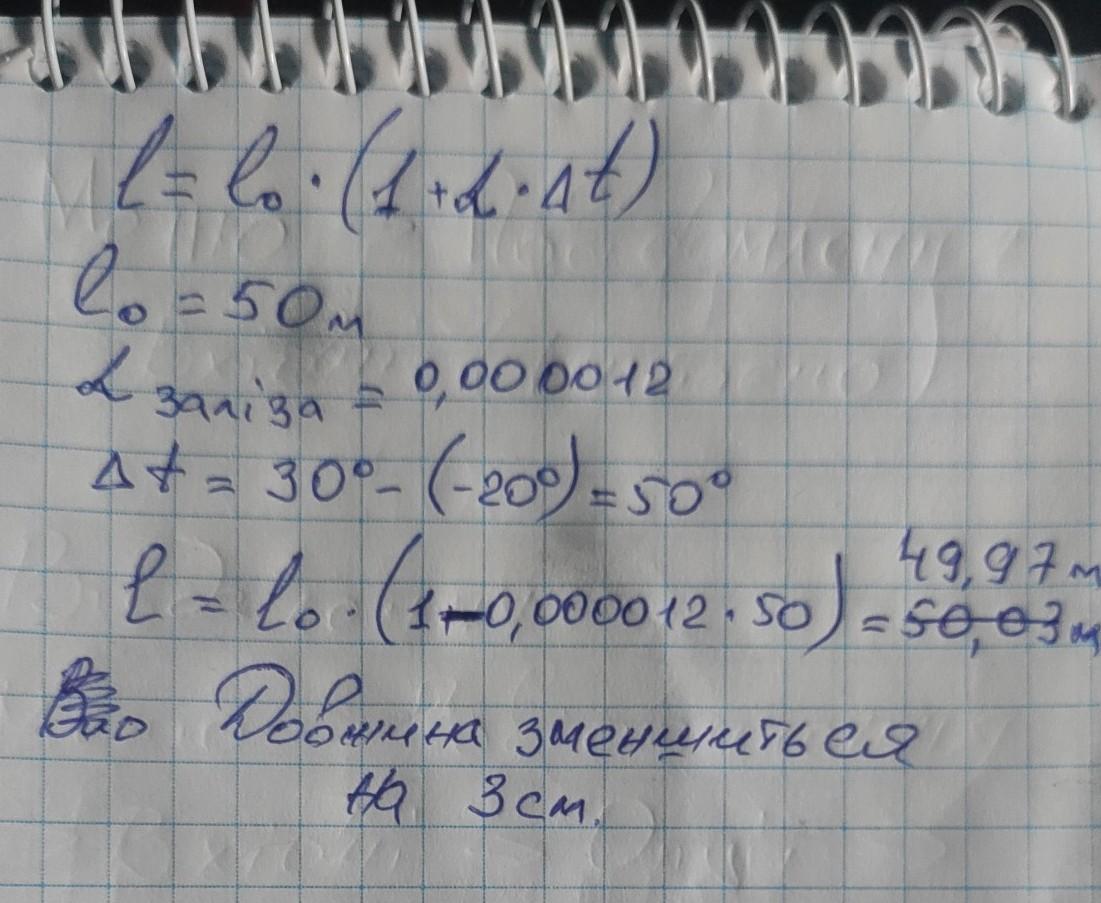 l = l₀ · (1 + α · Δt)
l₀ = 50м
α заліза = 0,000012
Δt = 30° - (-20°) = 50°
49,97м
l = l₀ · (1 - 0,000012 · 50) = 50,03м
Довжина зменшиться
на 3см.